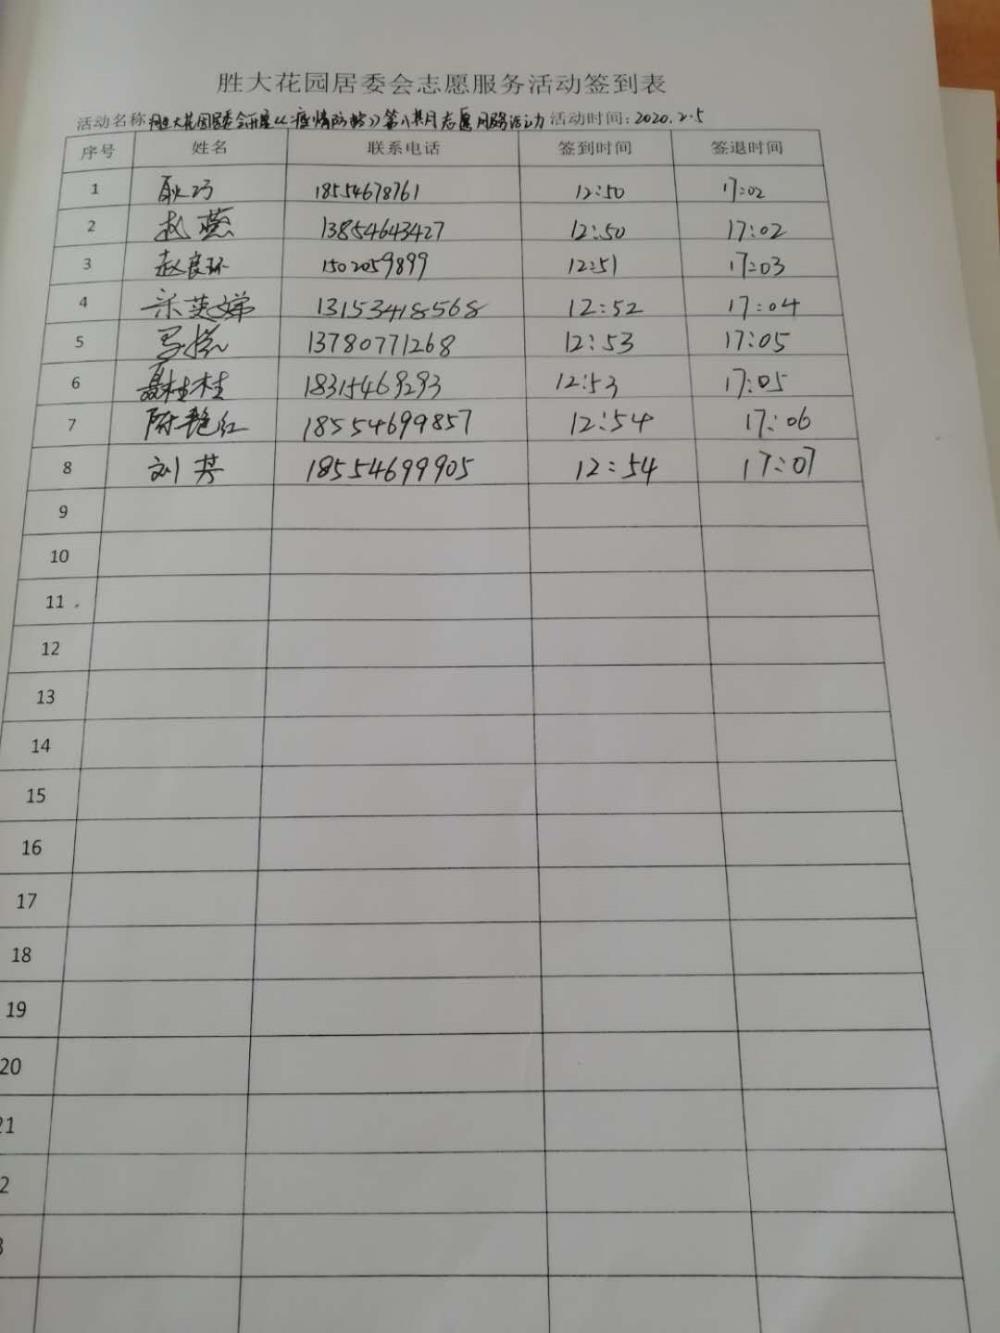 胜大花园居委会志愿服务活动签到表
活动名称 胜大花园居委会开展《疫情防控》第八 志愿服务活动 活动时间:2020.2.5
序号 姓名 联系电话 签到时间 签退时间
1 耿巧 18554678761 12:50 17:02
2 赵燕 13854643427 12:50 17:02
3 赵良环 1502059899 12:51 17:03
4 13153418568 12:52 17:04
5 13780771268 12:53 17:05
6 聂桂桂 18315469293 12:53 17:05
7 陈艳红 18554699857 12:54 17:06
8 刘芳 18554699905 12:54 17:07
9
10
11
12
13
14
15
16
17
18
19
20
21
2
3